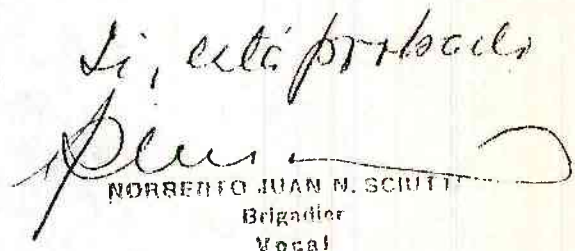 Si, está probado
NORBERTO JUAN N. SCIUTTI
Brigadier
Vocal